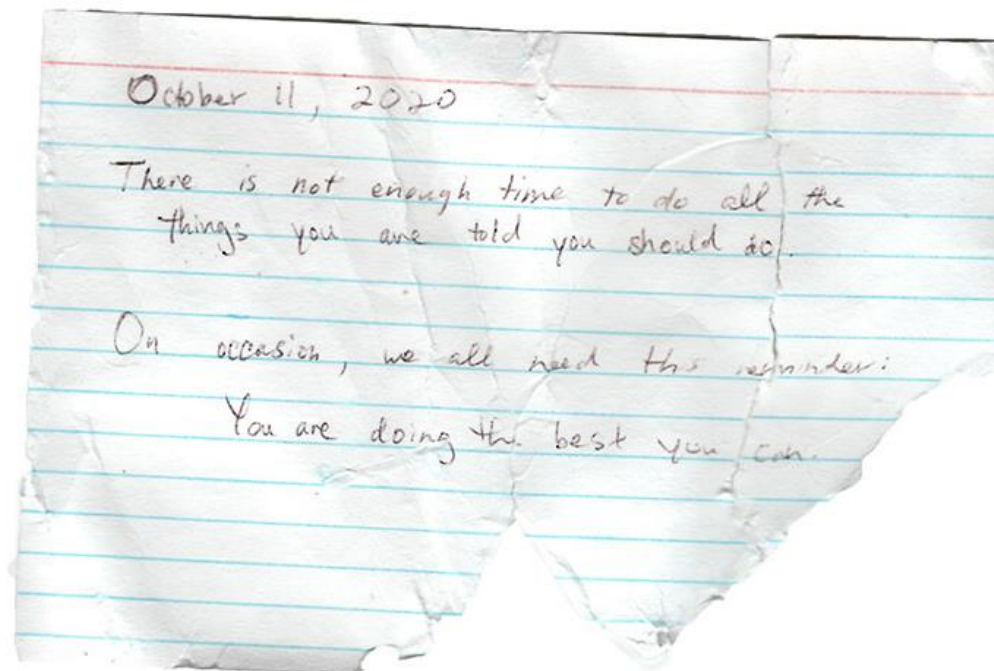 October 11, 2020
There is not enough time to do all the
things you are told you should do.
On occasion, we all need this reminder:
You are doing the best you can.